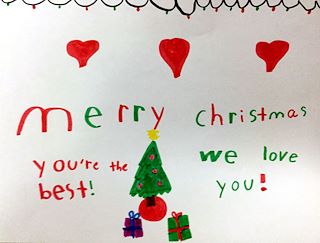 merry christmas
you're the
best!
we love
you!